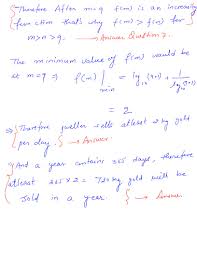 { Therefore After m=9 f(m) is an increasing
function that's why f(m) > f(n) for
m>n>9. } → Answer Question 2.
The minimum value of f(m) would be
at m=9 ⇒ f(m)|min = log10(9+1) + 1/log10(9+1)
= 2
⇒ { Therefore jeweller sells atleast 2 kg gold
per day. } → Answer.
{ And a year contains 365 days, therefore
atleast 365×2 = 730 kg gold will be
sold in a year. } → Answer